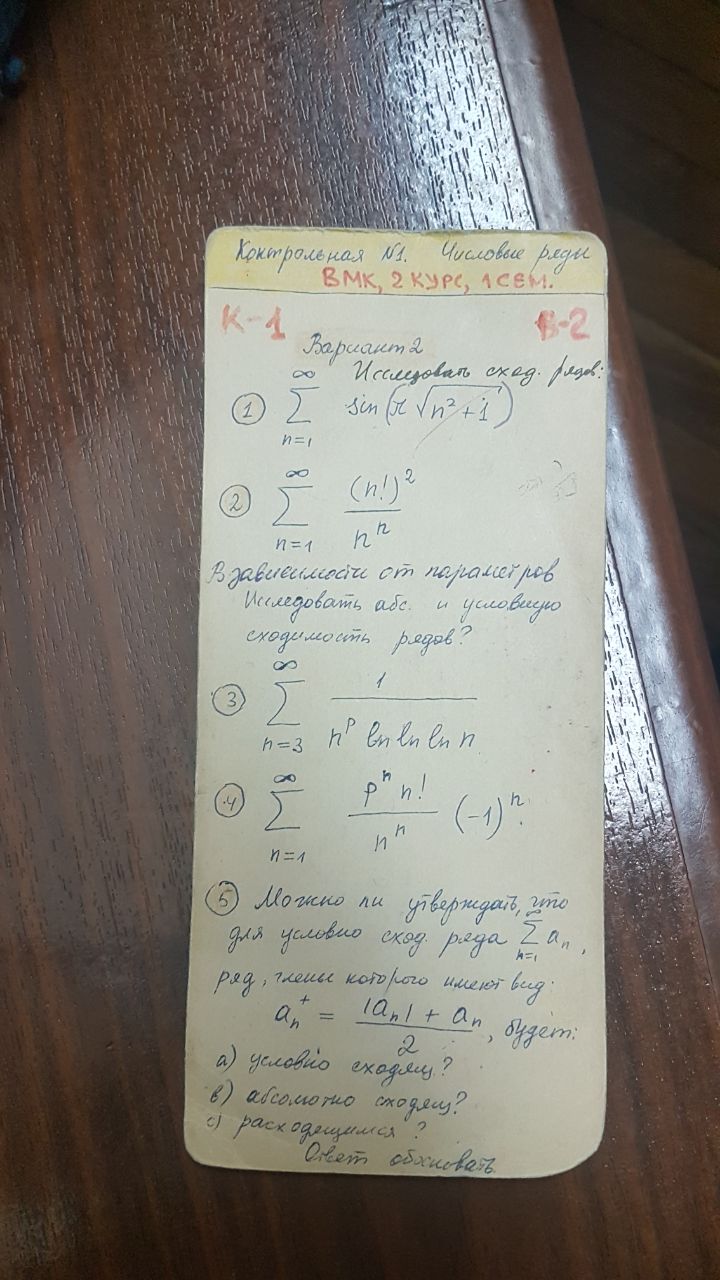 Контрольная №1. Числовые ряды
ВМК, 2 КУРС, 1 СЕМ.
К-1 В-2
Вариант 2
Исследовать сход. рядов:
① ∞ ∑ n=1 sin(π√(n²+1))
② ∞ ∑ n=1 (n!)² / nⁿ
В зависимости от параметров
Исследовать абс. и условную
сходимость рядов?
③ ∞ ∑ n=3 1 / (nᵖ ln ln ln n)
④ ∞ ∑ n=1 pⁿ n! / nⁿ (-1)ⁿ.
⑤ Можно ли утверждать, что
для условно сход. ряда ∞ ∑ n=1 aₙ,
ряд, члены которого имеют вид:
aₙ⁺ = (|aₙ| + aₙ) / 2, будет:
а) условно сходящ.?
в) абсолютно сходящ?
с) расходящимся?
Ответ обосновать.